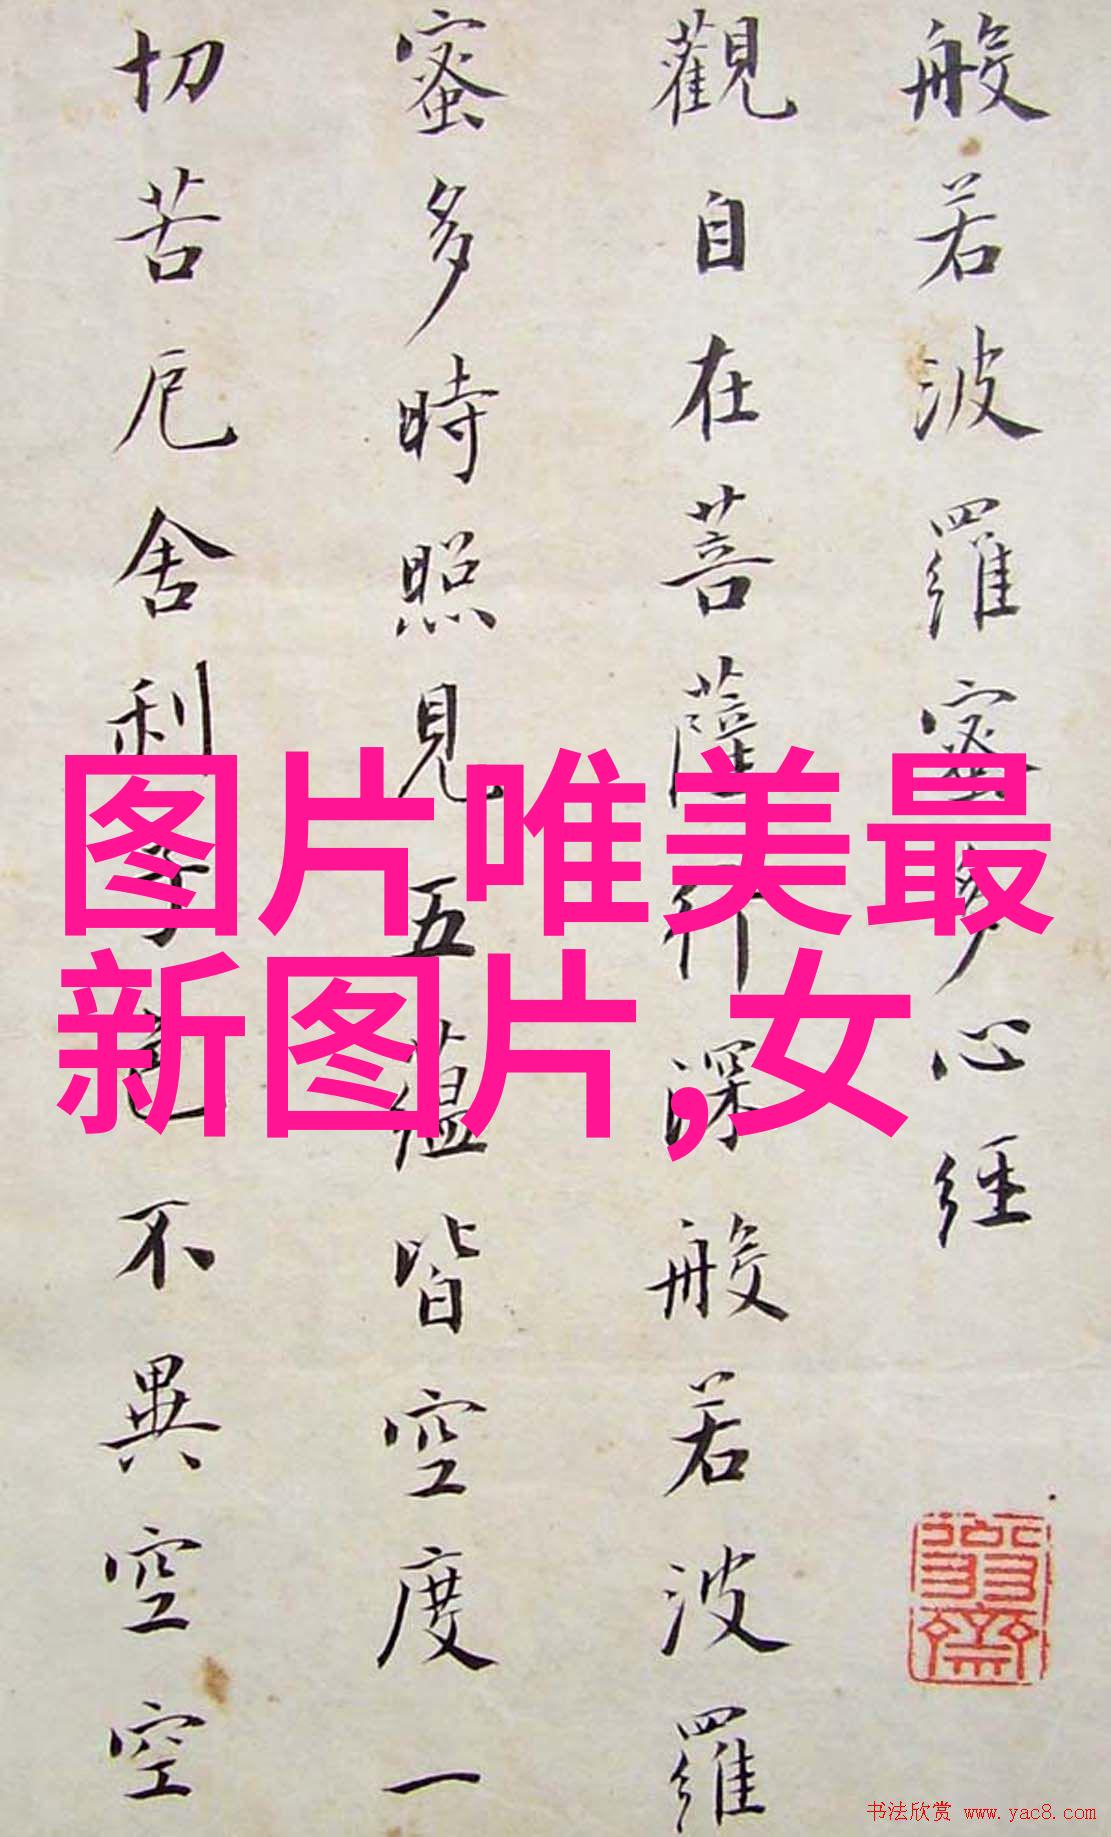 般若波羅蜜多心經
觀自在菩薩行深般若波羅
蜜多時照見五蘊皆空度一
切苦厄舍利子色不異空空
图片唯美最
新图片,女
书法欣赏 www.yac8.com